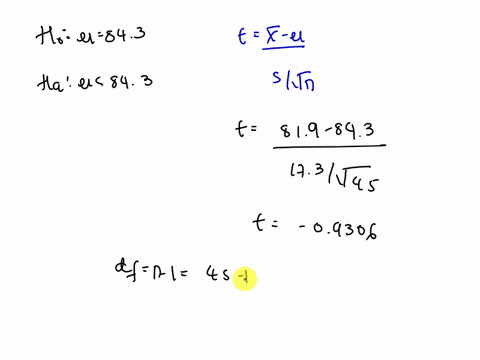 H₀: μ=84.3
Ha: μ< 84.3
t = x̄-μ
s/√n
t = 81.9-84.3
17.3/√45
t = -0.9306
df=n-1= 45-1